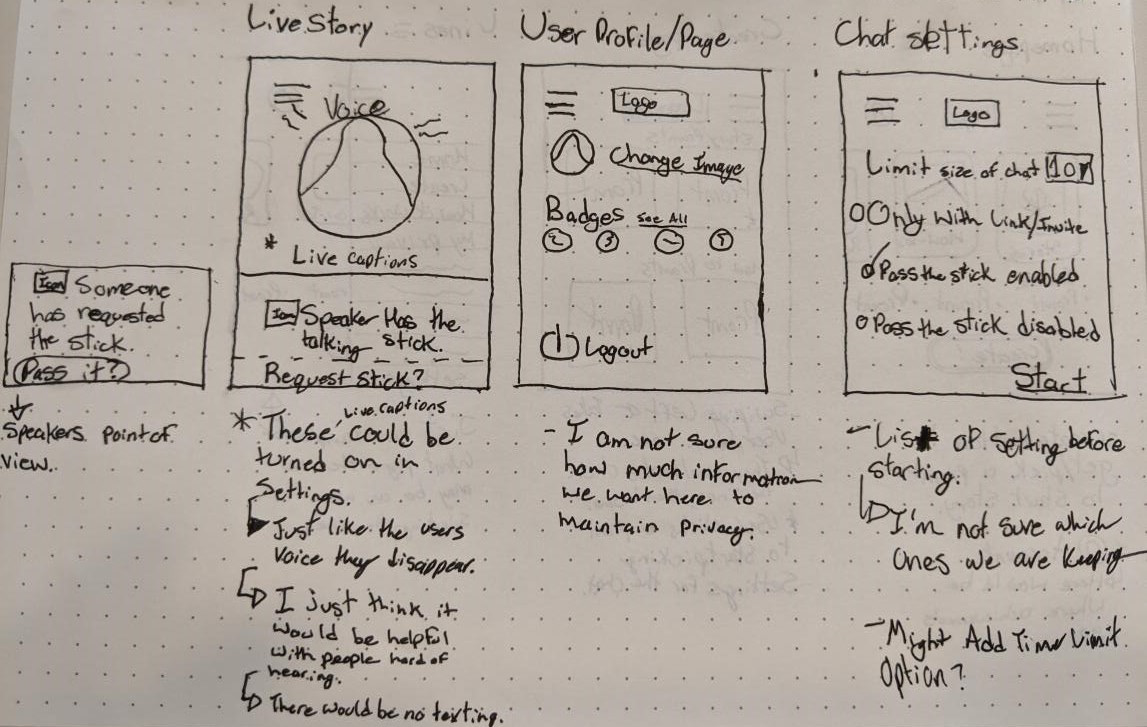 Live Story
Voice
* Live captions
Icon Speaker Has the
talking stick.
Request Stick?
Icon Someone
has requested
the stick.
Pass it?
Speakers point of
view.
Live captions
* These could be
turned on in
Settings.
Just like the users
voice they disappear.
I just think it
would be helpful
with people hard of
hearing.
There would be no texting.
User Profile/Page
Logo
Change Image
Badges see All
Logout
- I am not sure
how much information
we want here to
maintain privacy.
Chat settings
Logo
Limit size of chat 10
Only with Link/Invite
Pass the stick enabled
Pass the stick disabled
Start
- List of setting before
starting.
I'm not sure which
ones we are keeping
- Might Add Time Limit
option?